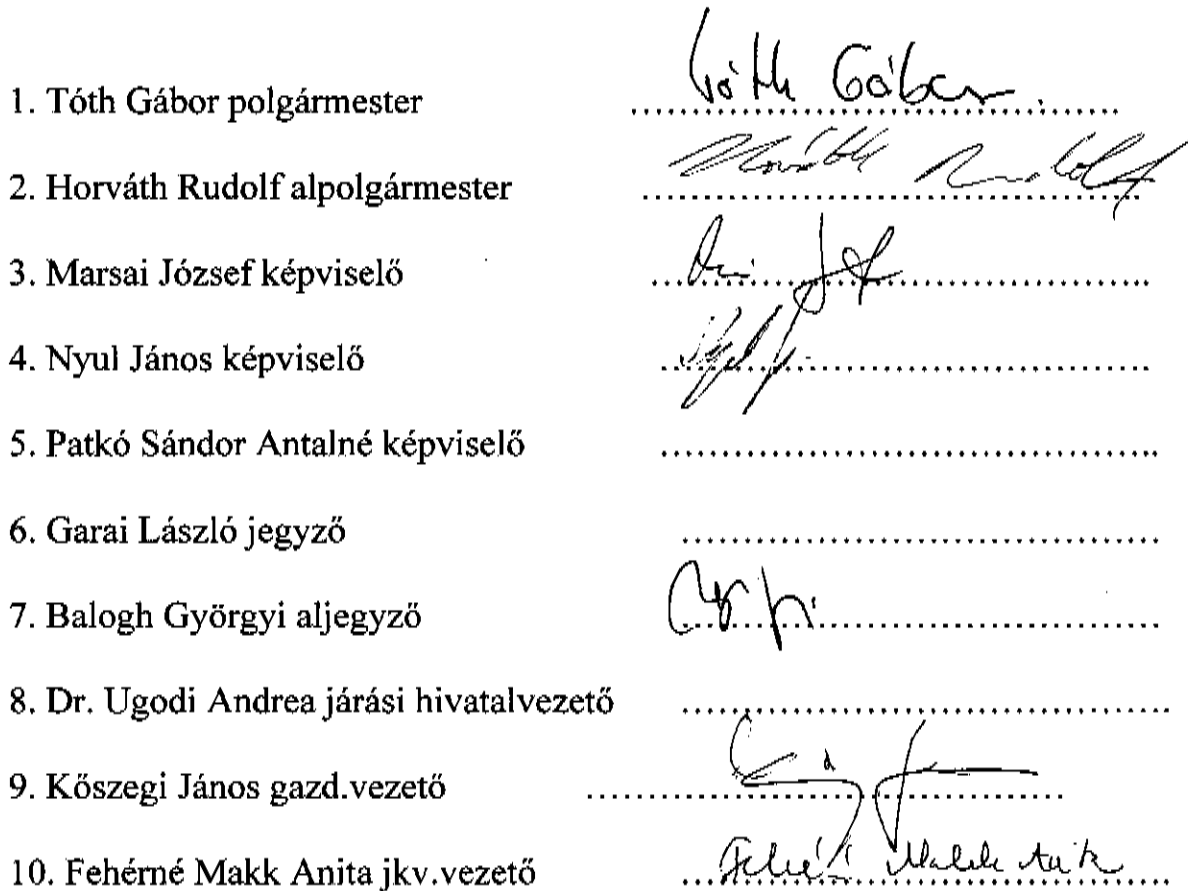 1. Tóth Gábor polgármester ........................................ Tóth Gábor
2. Horváth Rudolf alpolgármester ........................................ Horváth Rudolf
3. Marsai József képviselő ........................................
4. Nyul János képviselő ........................................
5. Patkó Sándor Antalné képviselő ........................................
6. Garai László jegyző ........................................
7. Balogh Györgyi aljegyző ........................................
8. Dr. Ugodi Andrea járási hivatalvezető ........................................
9. Kőszegi János gazd.vezető ........................................
10. Fehérné Makk Anita jkv.vezető ........................................